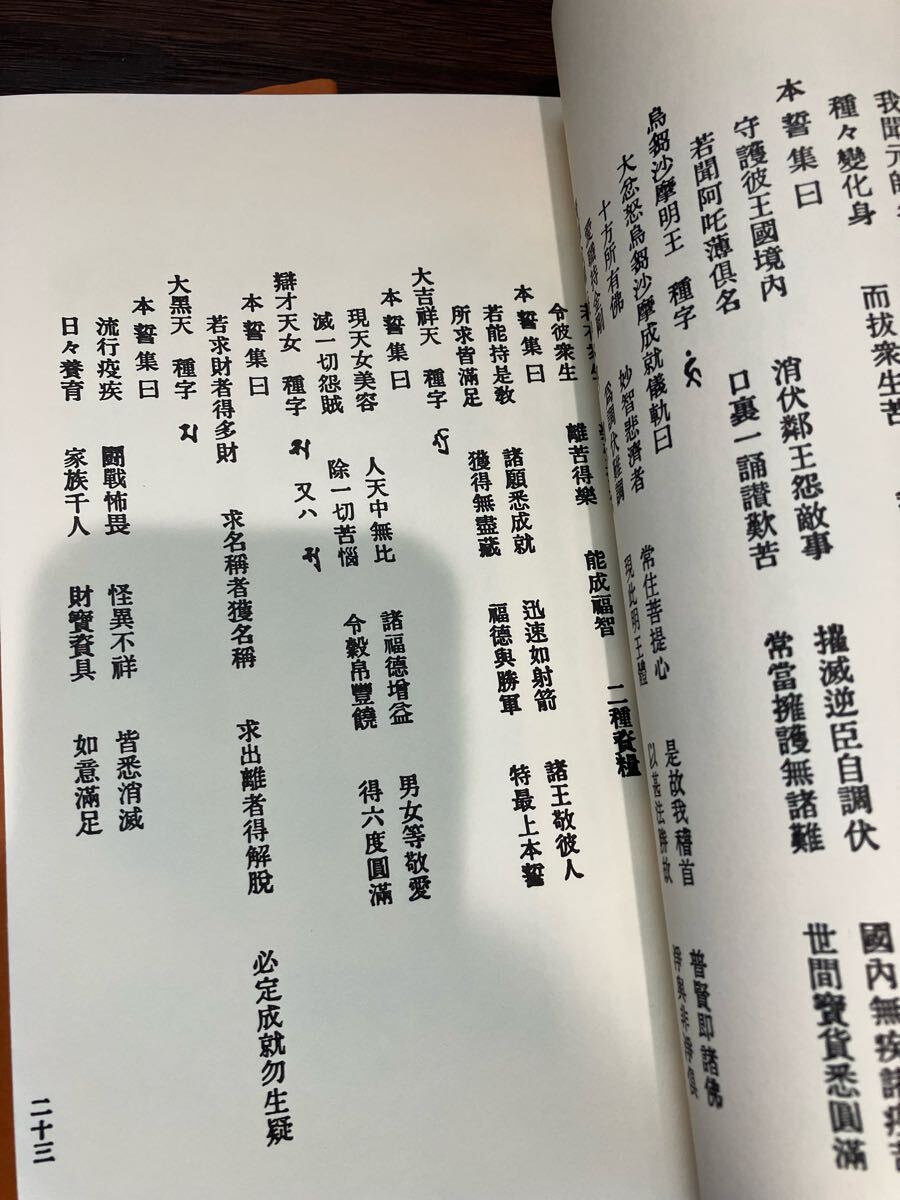 種々變化身　而拔衆生苦
本誓集曰
守護彼王國境内　消伏鄰王怨敵事　摧滅逆臣自調伏　國内無疾諸疫
若聞阿吒薄俱名　口裏一誦讃歎苦　常當擁護無諸難　世間寶貨悉圓滿
烏芻沙摩明王　種字
大忿怒烏芻沙摩成就儀軌曰
十方所有佛　妙智悲濟者　常住菩提心　是故我稽首　普賢即諸佛
現此明王體　以甚法勝故
令彼衆生　離苦得樂　能成福智　二種資糧
本誓集曰
若能持是教　諸願悉成就　迅速如射箭　諸王敬彼人
所求皆滿足　獲得無盡藏　福德與勝軍　特最上本誓
大吉祥天　種字
本誓集曰
現天女美容　人天中無比　諸福德增益　男女等敬愛
滅一切怨賊　除一切苦惱　令穀帛豐饒　得六度圓滿
辯才天女　種字　又ハ
本誓集曰
若求財者得多財　求名稱者獲名稱　求出離者得解脱　必定成就勿生疑
大黑天　種字
本誓集曰
流行疫疾　鬪戰怖畏　怪異不祥　皆悉消滅
日々養育　家族千人　財寶資具　如意滿足
二十三